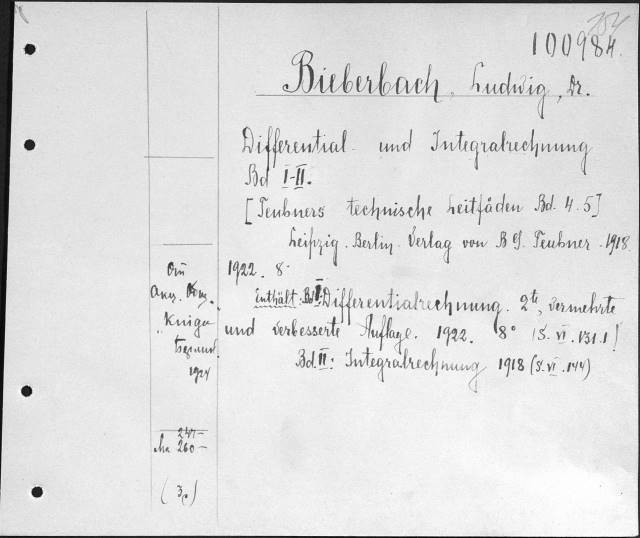 100984.
Bieberbach, Ludwig, Dr.
Differential- und Integralrechnung
Bd I-II.
[Teubners technische Leitfäden Bd. 4-5]
Leipzig. Berlin. Verlag von B G. Teubner. 1918.
1922. 8°
Enthält: Bd I: Differentialrechnung. 2te, vermehrte
und verbesserte Auflage. 1922. 8° (S. VI. 131.)
Bd. II: Integralrechnung 1918 (S. VI. 144)
"Kniga"
1924
247-
260-